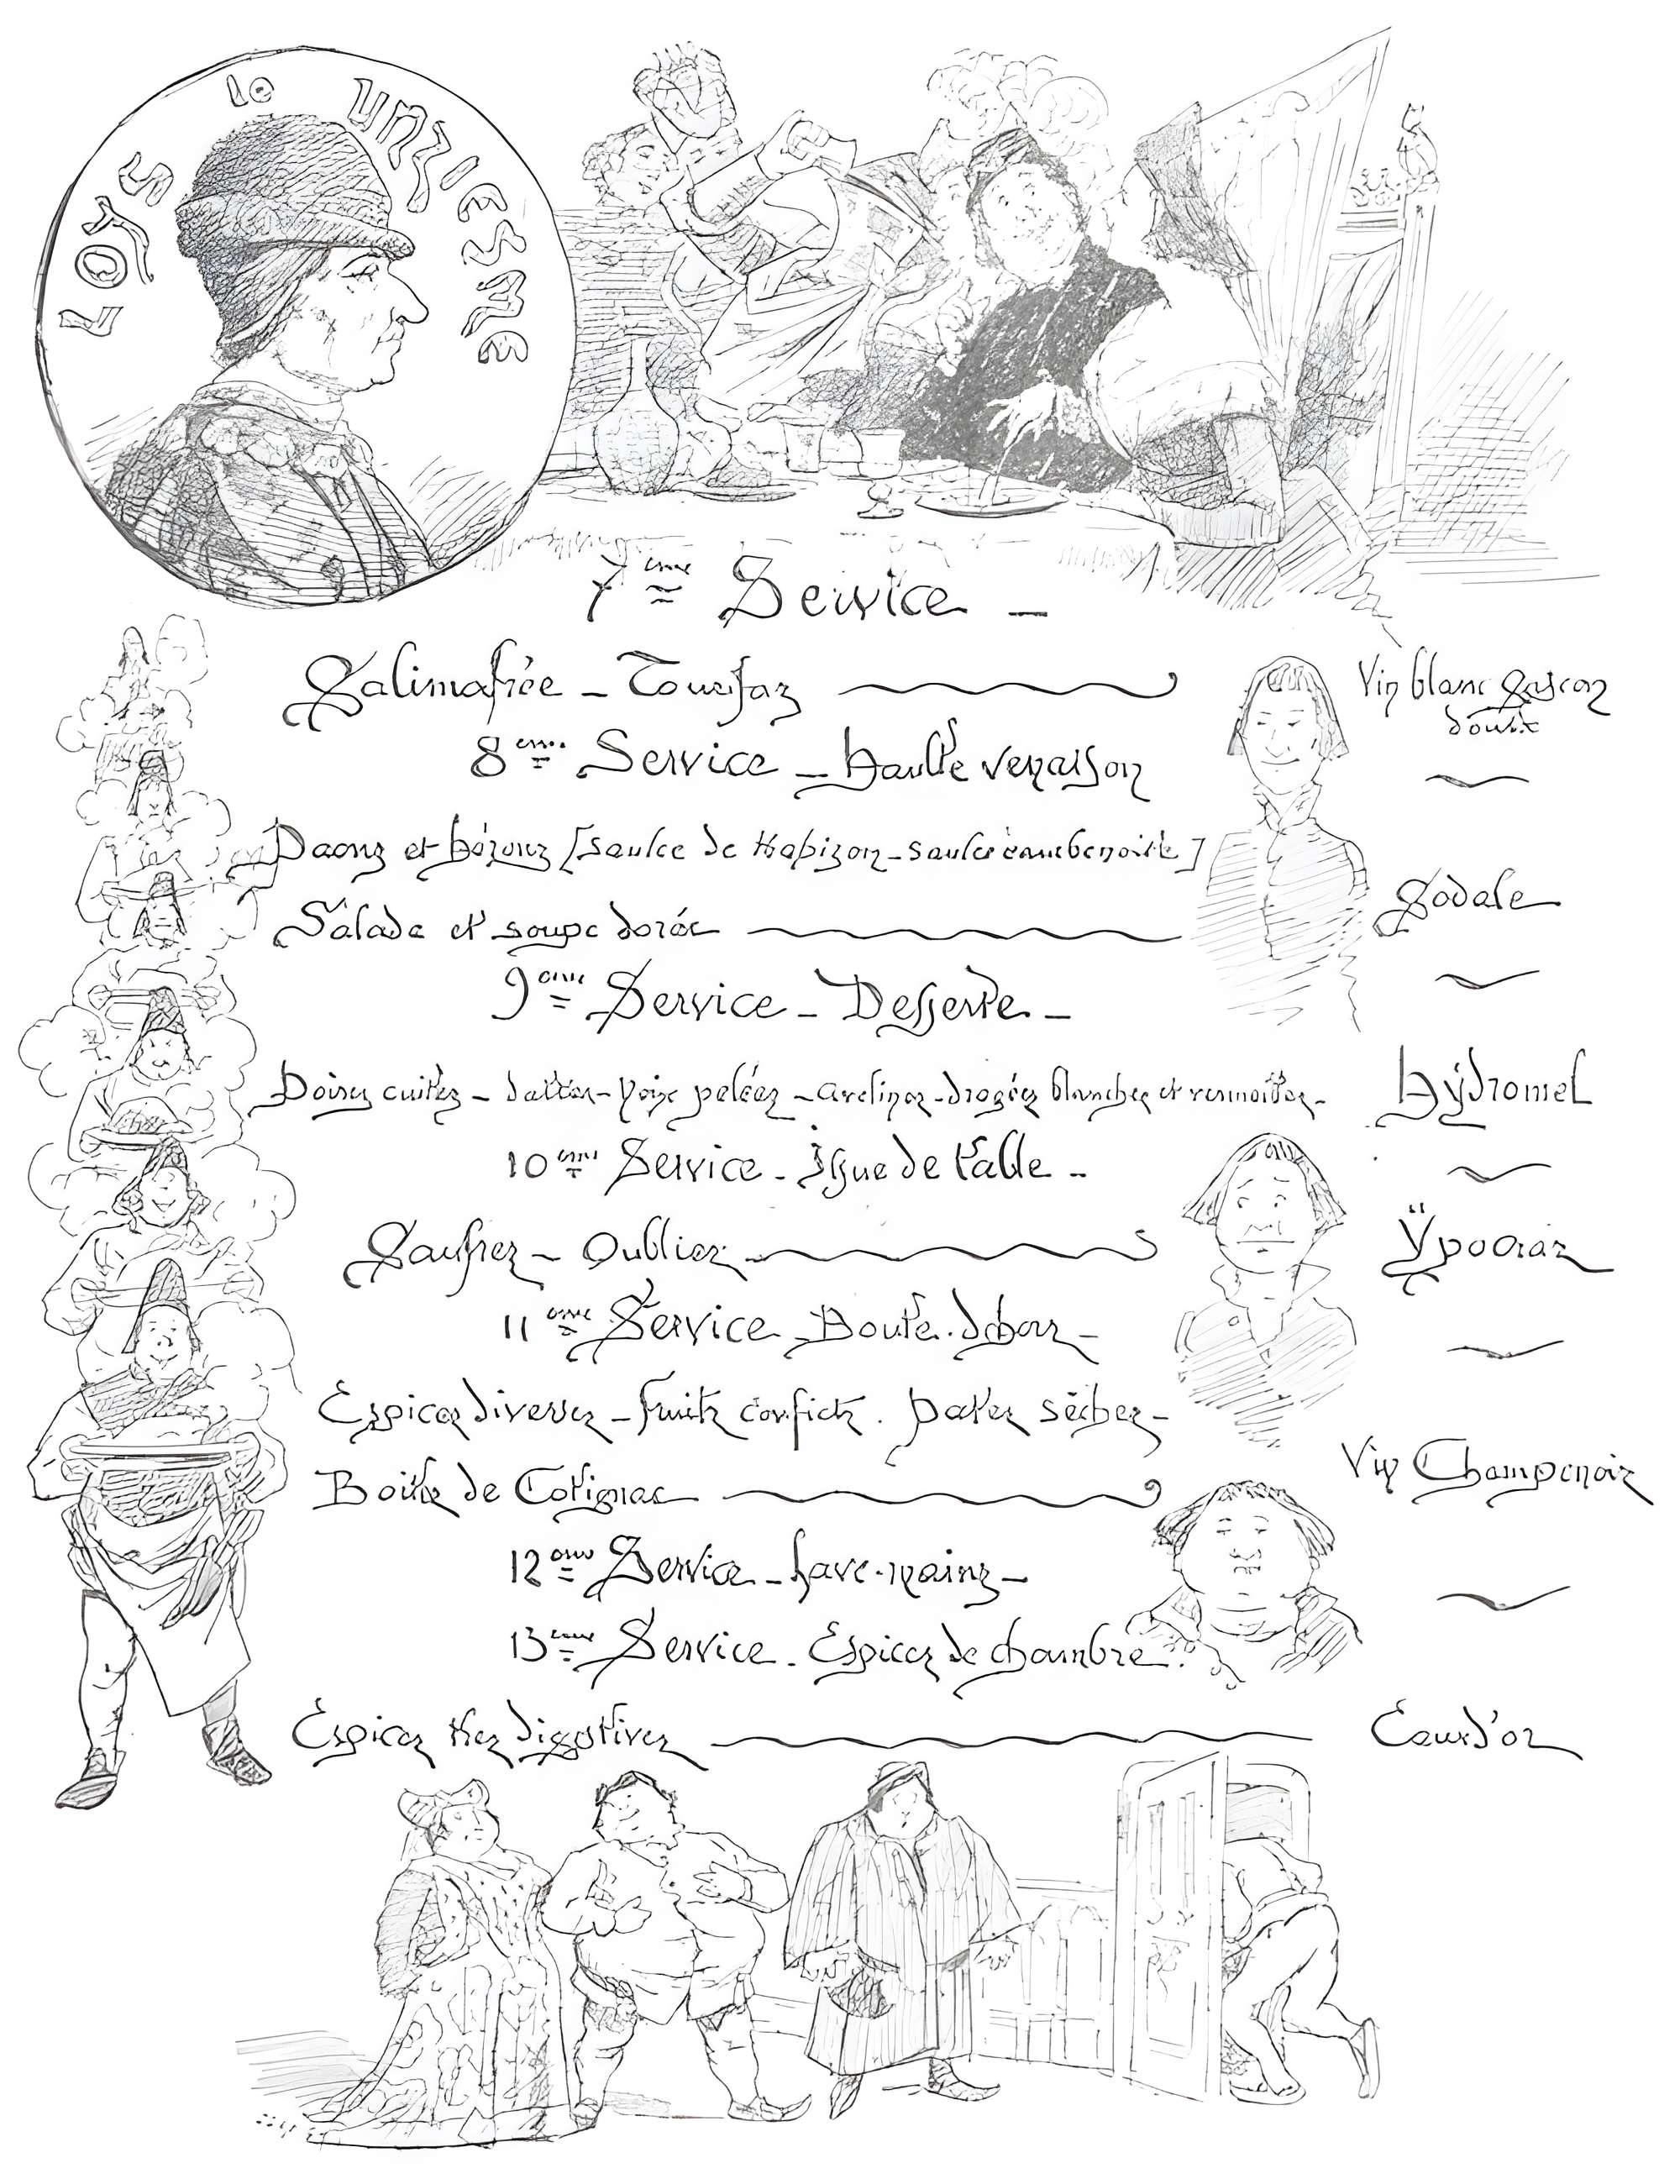 Loys le unziesme
7ème Service —
Galimafrée — Tourfaz
Vin blanc gascon
doulx
8ème Service — Haulte venaison
Paonz et héronz [saulce de Hapizon — saulce eauebenoite]
Salade et soupe dorée
Godale
9ème Service — Desserte —
Poirez cuitez — dattez — Noix peléez — avelinez — dragéez blanchez et vermoillez —
Hÿdromel
10ème Service — Issue de table —
Gaufrez — Oubliez
Ÿpocraz
11ème Service — Boute-dehorz —
Espicez diversez — fruitz confictz. patez sèchez —
Vin Champenoiz
Boitez de Cotignac
12ème Service — Lave-mainz —
13ème Service — Espicez de chambre.
Espicez trez digestivez
Eau d'or